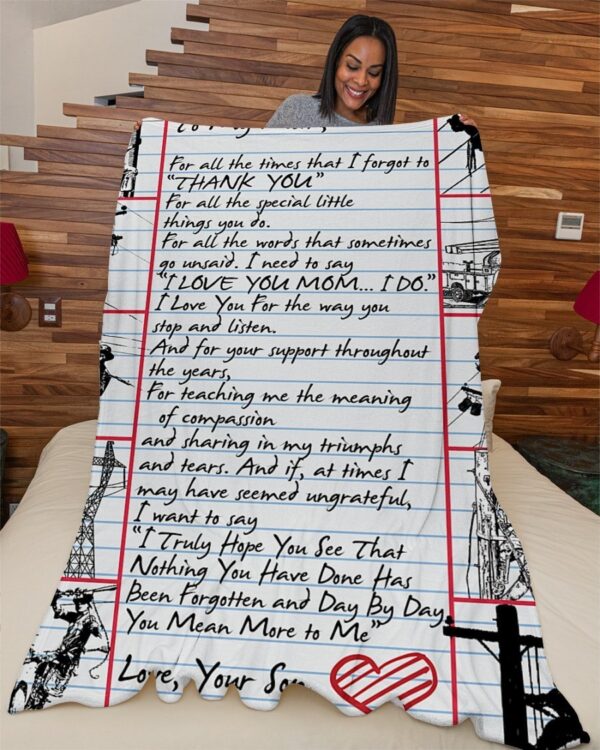 For all the times that I forgot to
"THANK YOU"
For all the special little
things you do.
For all the words that sometimes
go unsaid. I need to say
"I LOVE YOU MOM... I DO."
I Love You For the way you
stop and listen.
And for your support throughout
the years,
For teaching me the meaning
of compassion
and sharing in my triumphs
and tears. And if, at times I
may have seemed ungrateful,
I want to say
"I Truly Hope You See That
Nothing You Have Done Has
Been Forgotten and Day By Day
You Mean More to Me"
Love, Your